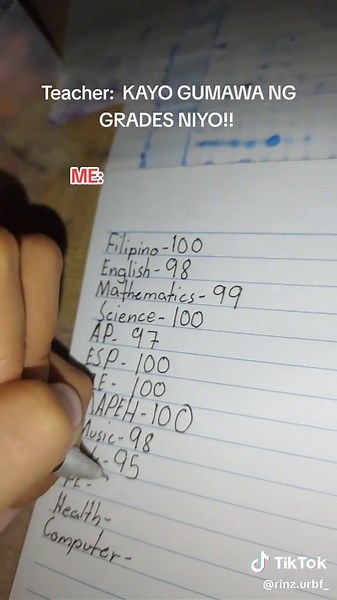 Teacher: KAYO GUMAWA NG
GRADES NIYO!!
ME:
Filipino-100
English-98
Mathematics-99
Science-100
AP-97
ESP-100
E-100
MAPEH-100
Music-98
-95
PE-
Health-
Computer-
TikTok
@rinz.urbf_